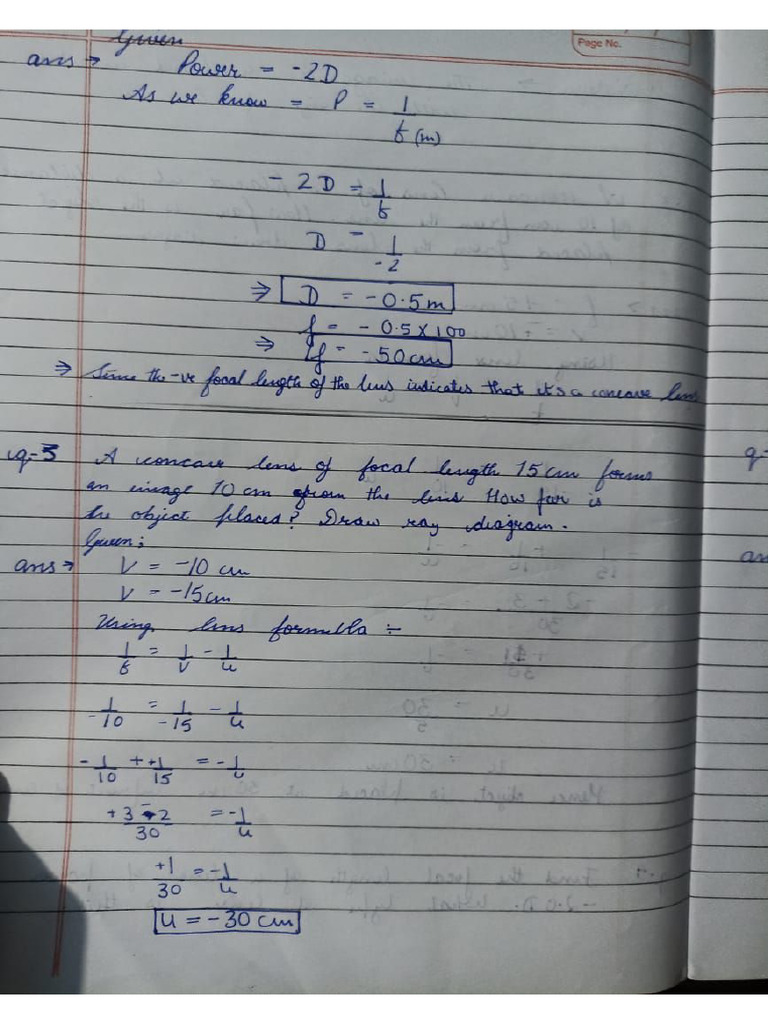 Given
Page No.
ans → Power = -2D
As we know = P = 1/f (m)
- 2D = 1/f
D = 1/-2
⇒ D = -0.5m
f = - 0.5 x 100
⇒ f = - 50cm
⇒ Since the -ve focal length of the lens indicates that it's a concave lens
q-5 A concave lens of focal length 15 cm forms
an image 10 cm from the lens How far is
he object places? Draw ray diagram.
Given;
ans → V = -10 cm
V = -15cm
Using lens formulla ÷
1/f = 1/v - 1/u
1/-10 = 1/-15 - 1/u
- 1/10 + +1/15 = - 1/u
+3 - 2/30 = -1/u
+1/30 = -1/u
u = -30 cm
q-
an